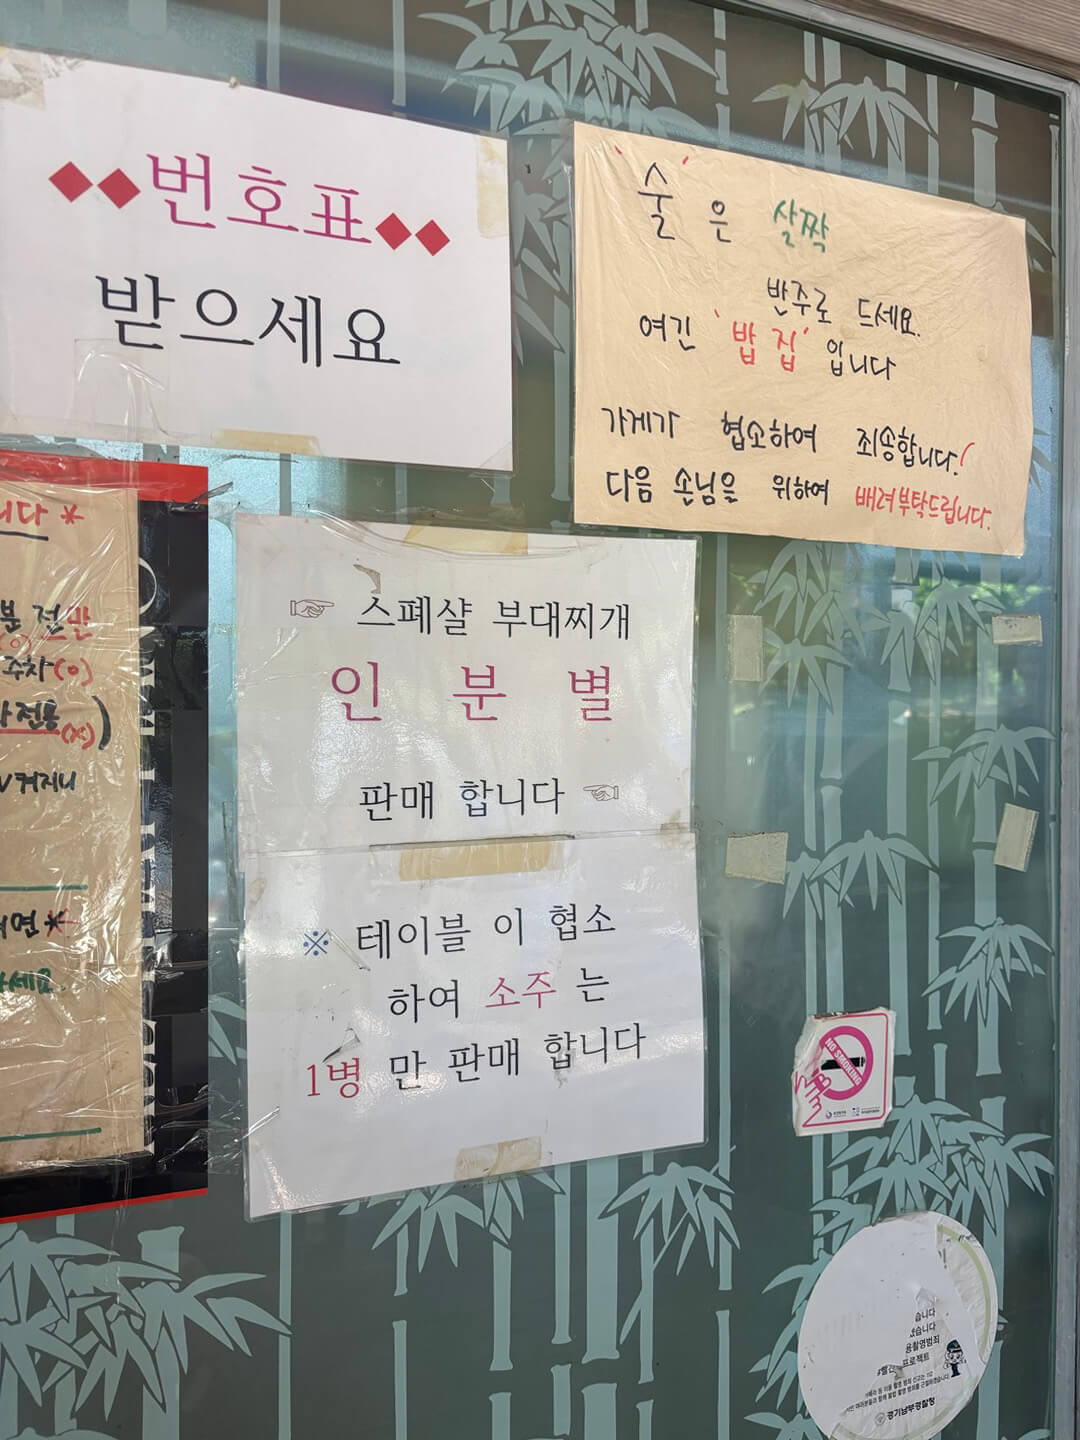 ◆◆번호표◆◆
받으세요
'술'은 살짝
반주로 드세요.
여긴 '밥집' 입니다
가게가 협소하여 죄송합니다!
다음 손님을 위하여 배려부탁드립니다.
☞ 스폐샬 부대찌개
인 분 별
판매 합니다 ☜
※ 테이블 이 협소
하여 소주 는
1병 만 판매 합니다
니다 *
분 전만
(o)
주차(o)
전용
(x))
켜지니
연 *
세요.
NO SMOKING
습니다
습니다
용촬영범죄
프로젝트
경기남부경찰청